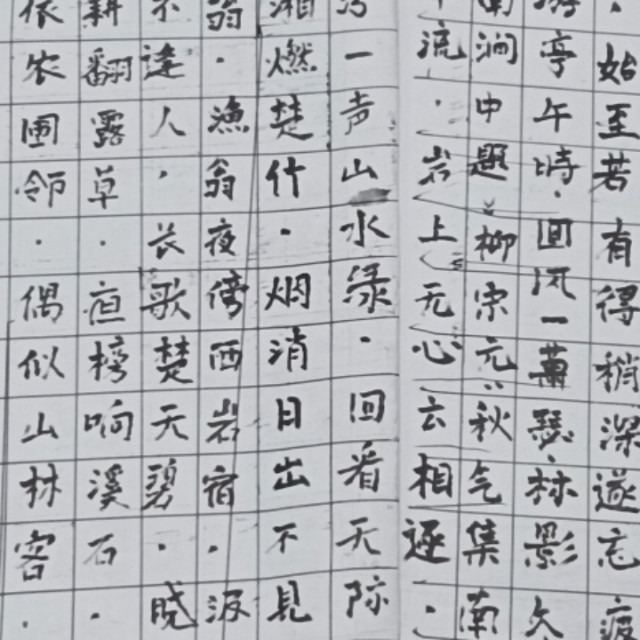 ·始至若有得稍深遂忘疲
游亭午時·回风一萧瑟·林影久
南涧中题 柳宗元:秋气集南
流·岩上无心云相逐·
乃一声山水绿·回看天际
湘燃楚竹·烟消日出不见
翁·渔翁夜傍西岩宿·汲
不逢人·长歌楚天碧·晓
耕翻露草·夜榜响溪石·
依农圃邻·偶似山林客·